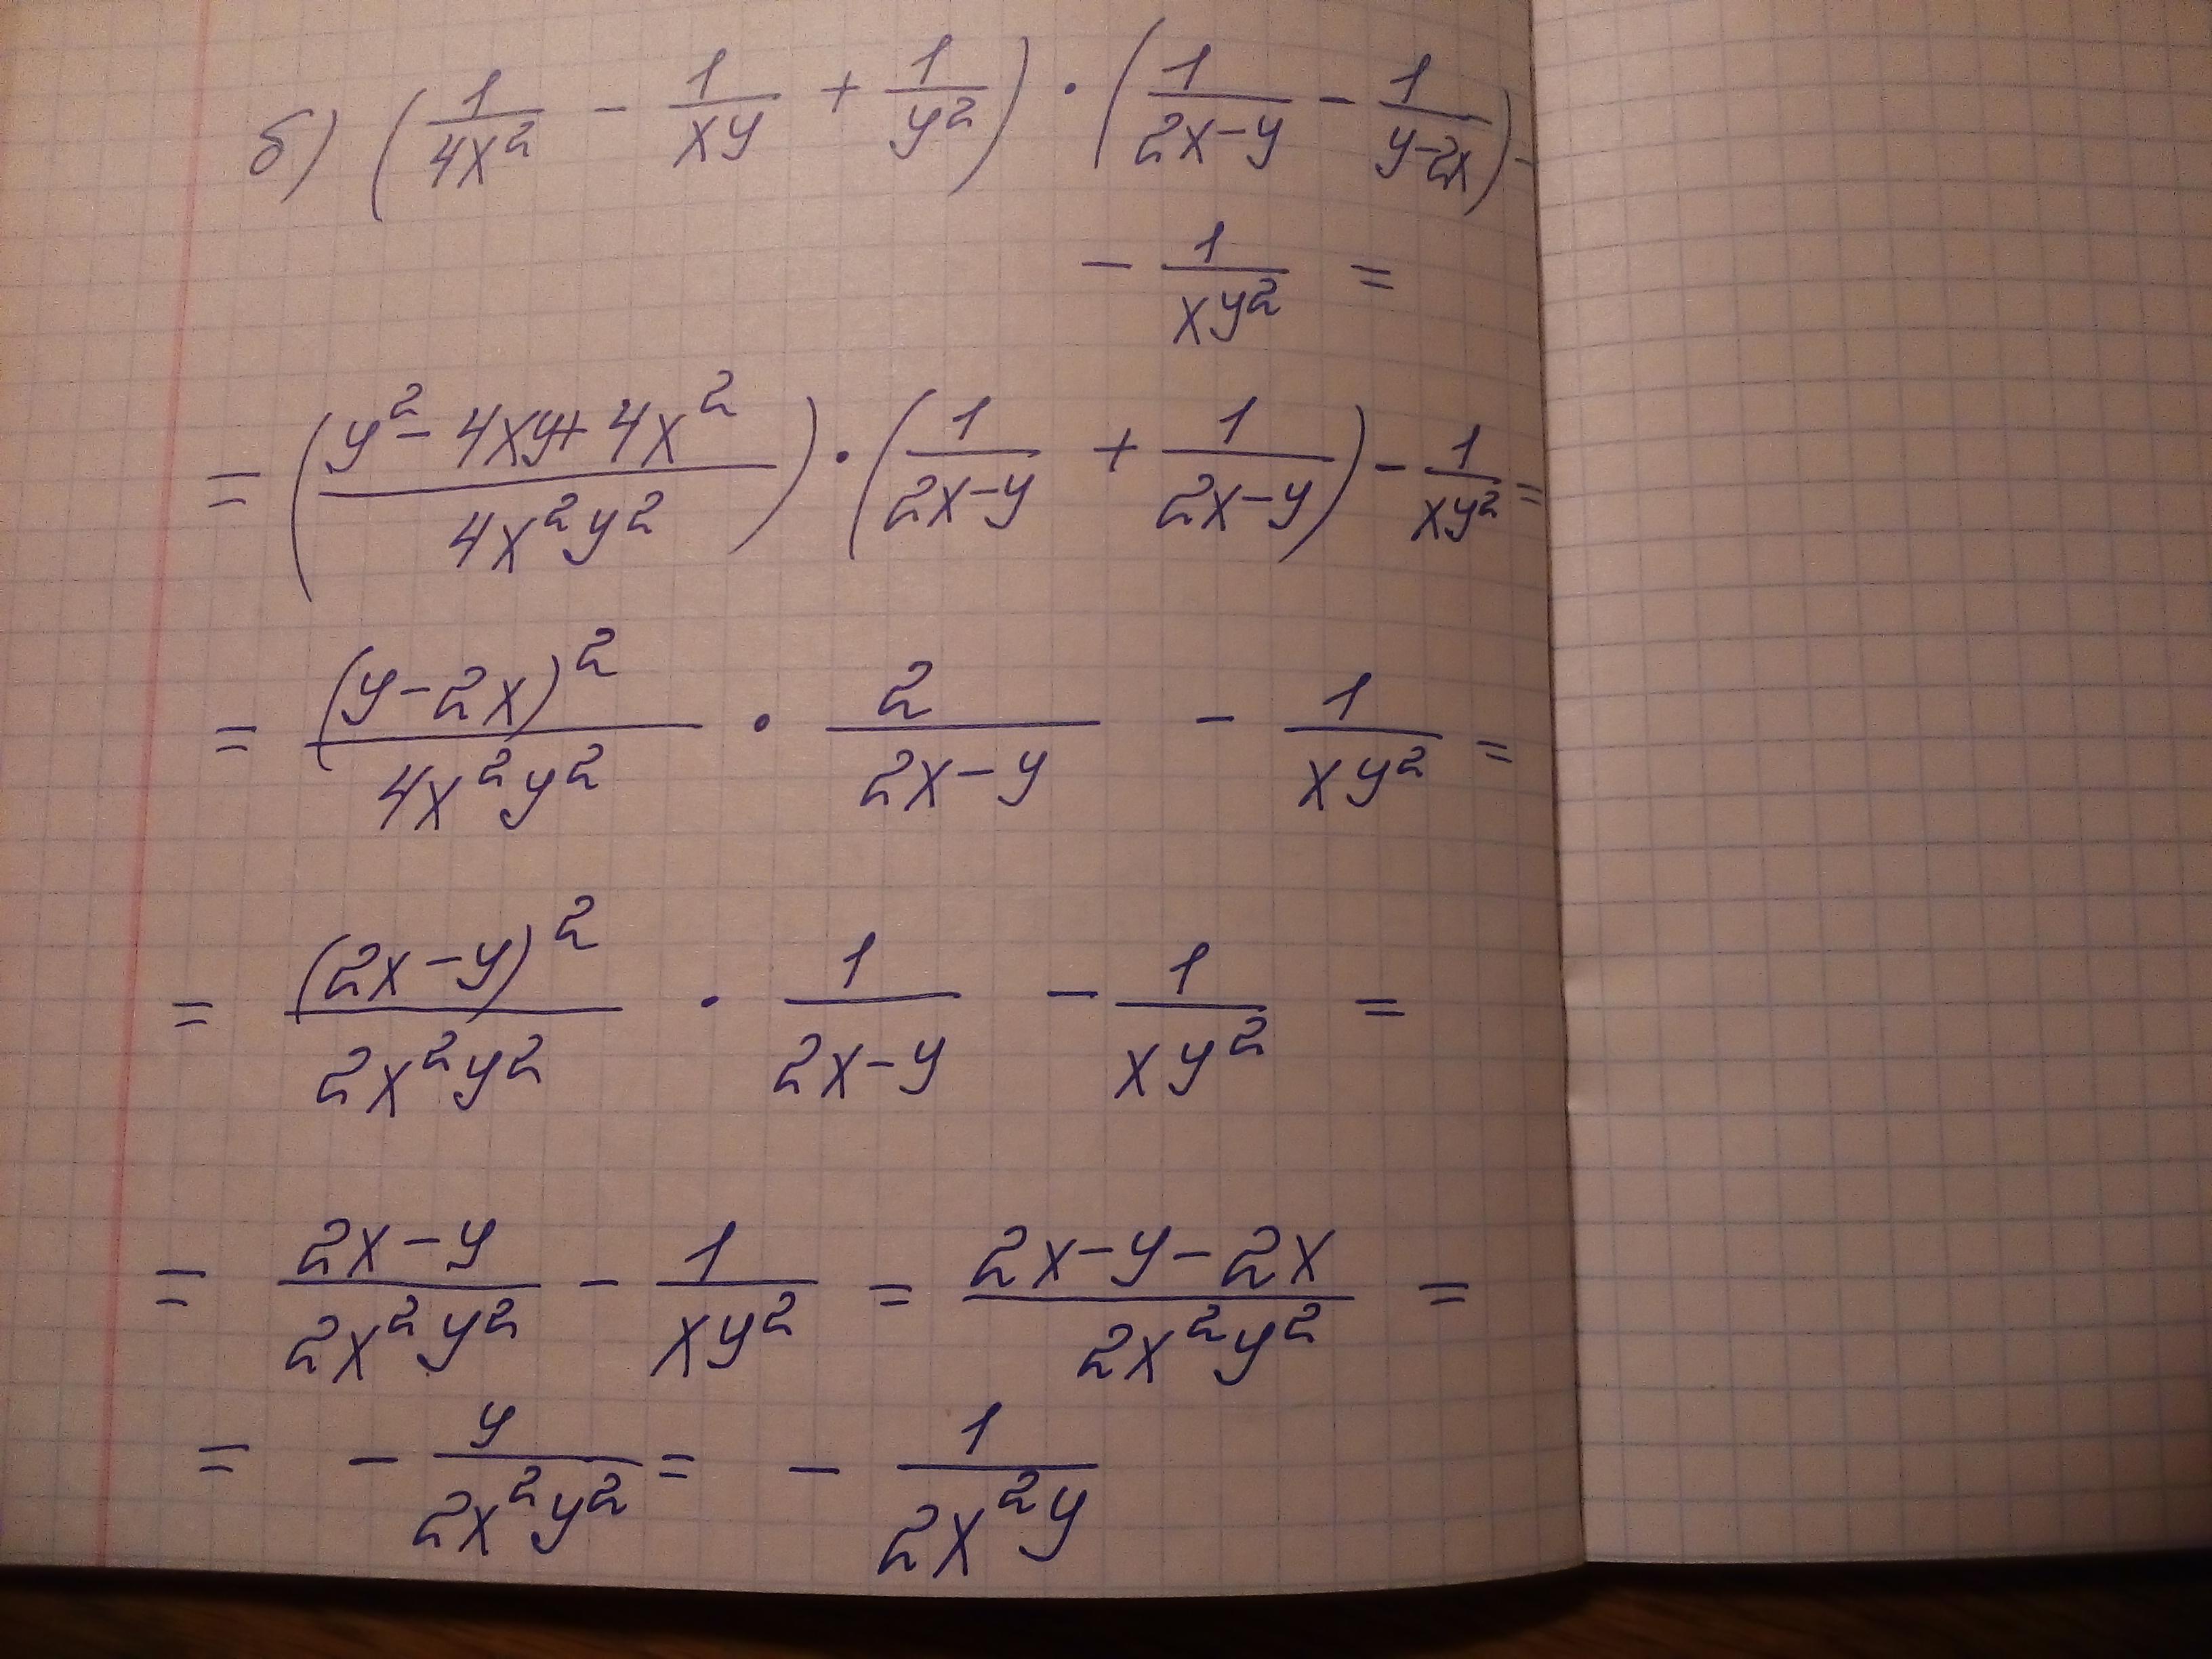 б) (1/4x² - 1/xy + 1/y²) · (1/2x-y - 1/y-2x) -
- 1/xy² =
= (y² - 4xy + 4x²/4x²y²) · (1/2x-y + 1/2x-y) - 1/xy² =
= (y-2x)²/4x²y² · 2/2x-y - 1/xy² =
= (2x-y)²/2x²y² · 1/2x-y - 1/xy² =
= 2x-y/2x²y² - 1/xy² = 2x-y-2x/2x²y² =
= - y/2x²y² = - 1/2x²y